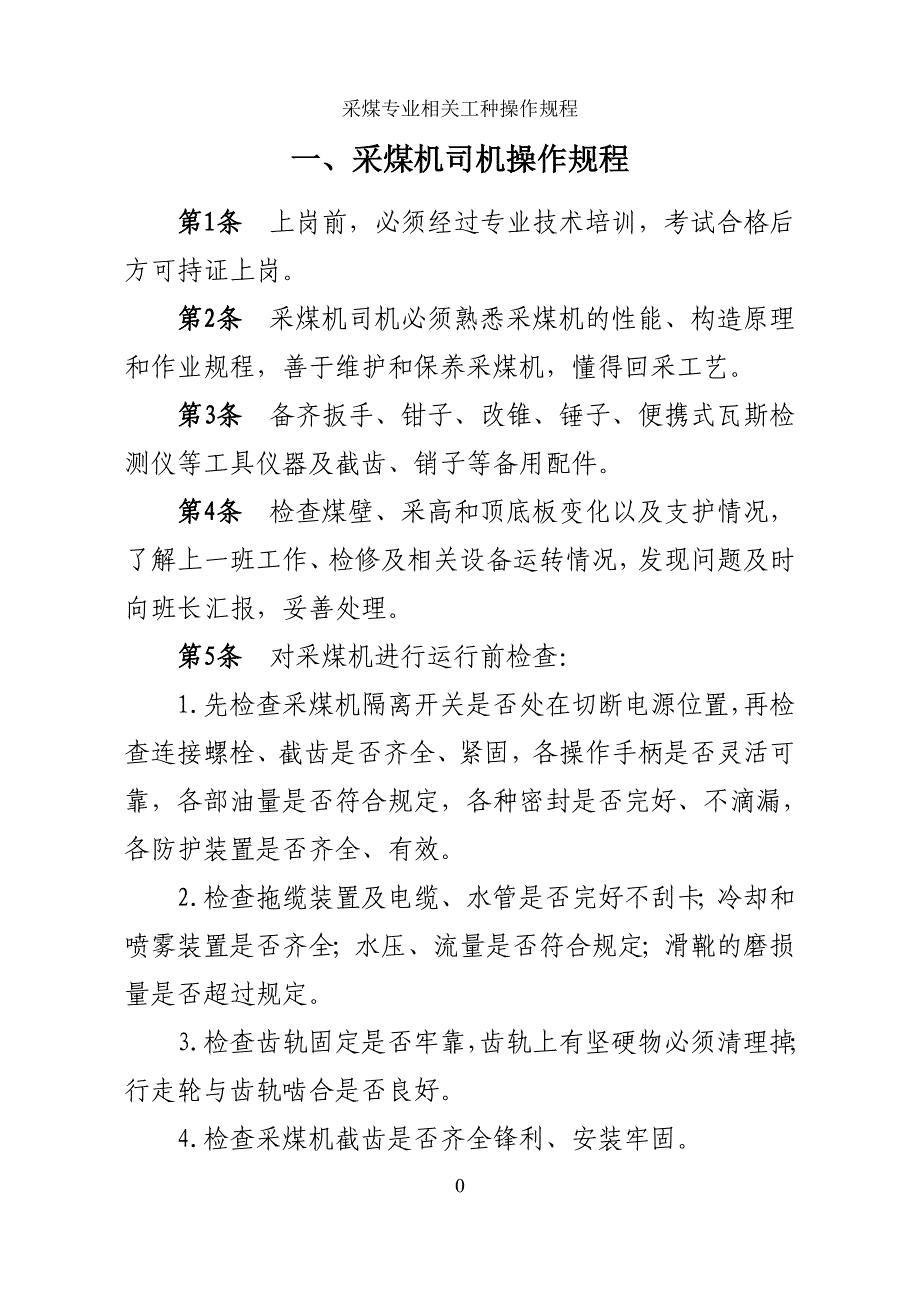 采煤专业相关工种操作规程
一、采煤机司机操作规程
第1条　上岗前，必须经过专业技术培训，考试合格后
方可持证上岗。
第2条　采煤机司机必须熟悉采煤机的性能、构造原理
和作业规程，善于维护和保养采煤机，懂得回采工艺。
第3条　备齐扳手、钳子、改锥、锤子、便携式瓦斯检
测仪等工具仪器及截齿、销子等备用配件。
第4条　检查煤壁、采高和顶底板变化以及支护情况，
了解上一班工作、检修及相关设备运转情况，发现问题及时
向班长汇报，妥善处理。
第5条　对采煤机进行运行前检查：
1.先检查采煤机隔离开关是否处在切断电源位置，再检
查连接螺栓、截齿是否齐全、紧固，各操作手柄是否灵活可
靠，各部油量是否符合规定，各种密封是否完好、不滴漏，
各防护装置是否齐全、有效。
2.检查拖缆装置及电缆、水管是否完好不刮卡；冷却和
喷雾装置是否齐全；水压、流量是否符合规定；滑靴的磨损
量是否超过规定。
3.检查齿轨固定是否牢靠，齿轨上有坚硬物必须清理掉；
行走轮与齿轨啮合是否良好。
4.检查采煤机截齿是否齐全锋利、安装牢固。
0